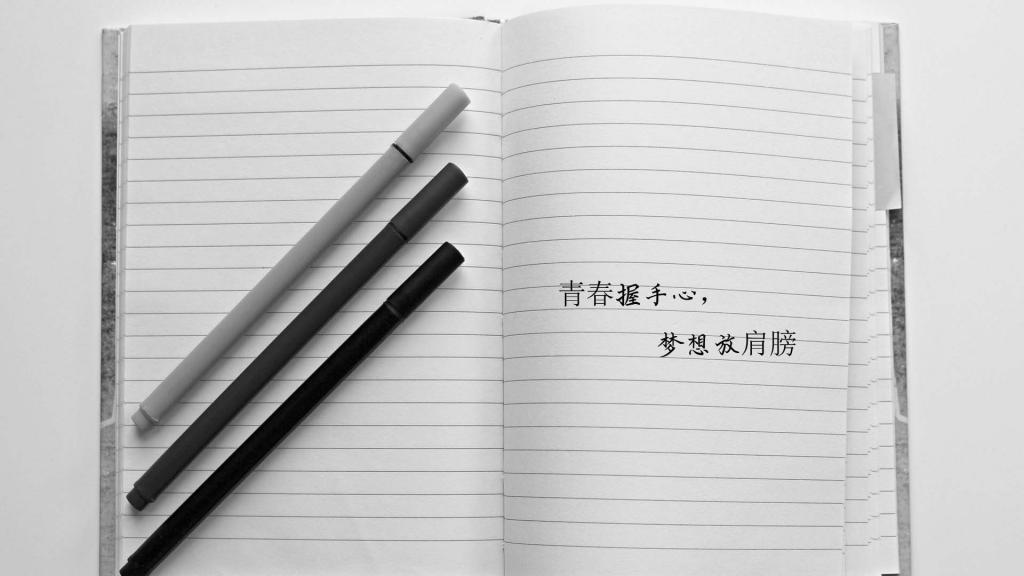 青春握手心，
梦想放肩膀